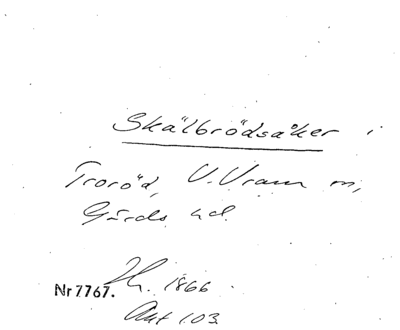 Skälbrödsåker i
Troröd, V. Vram m,
Gärds hd.
Nr 7767. 1866
Akt 103.